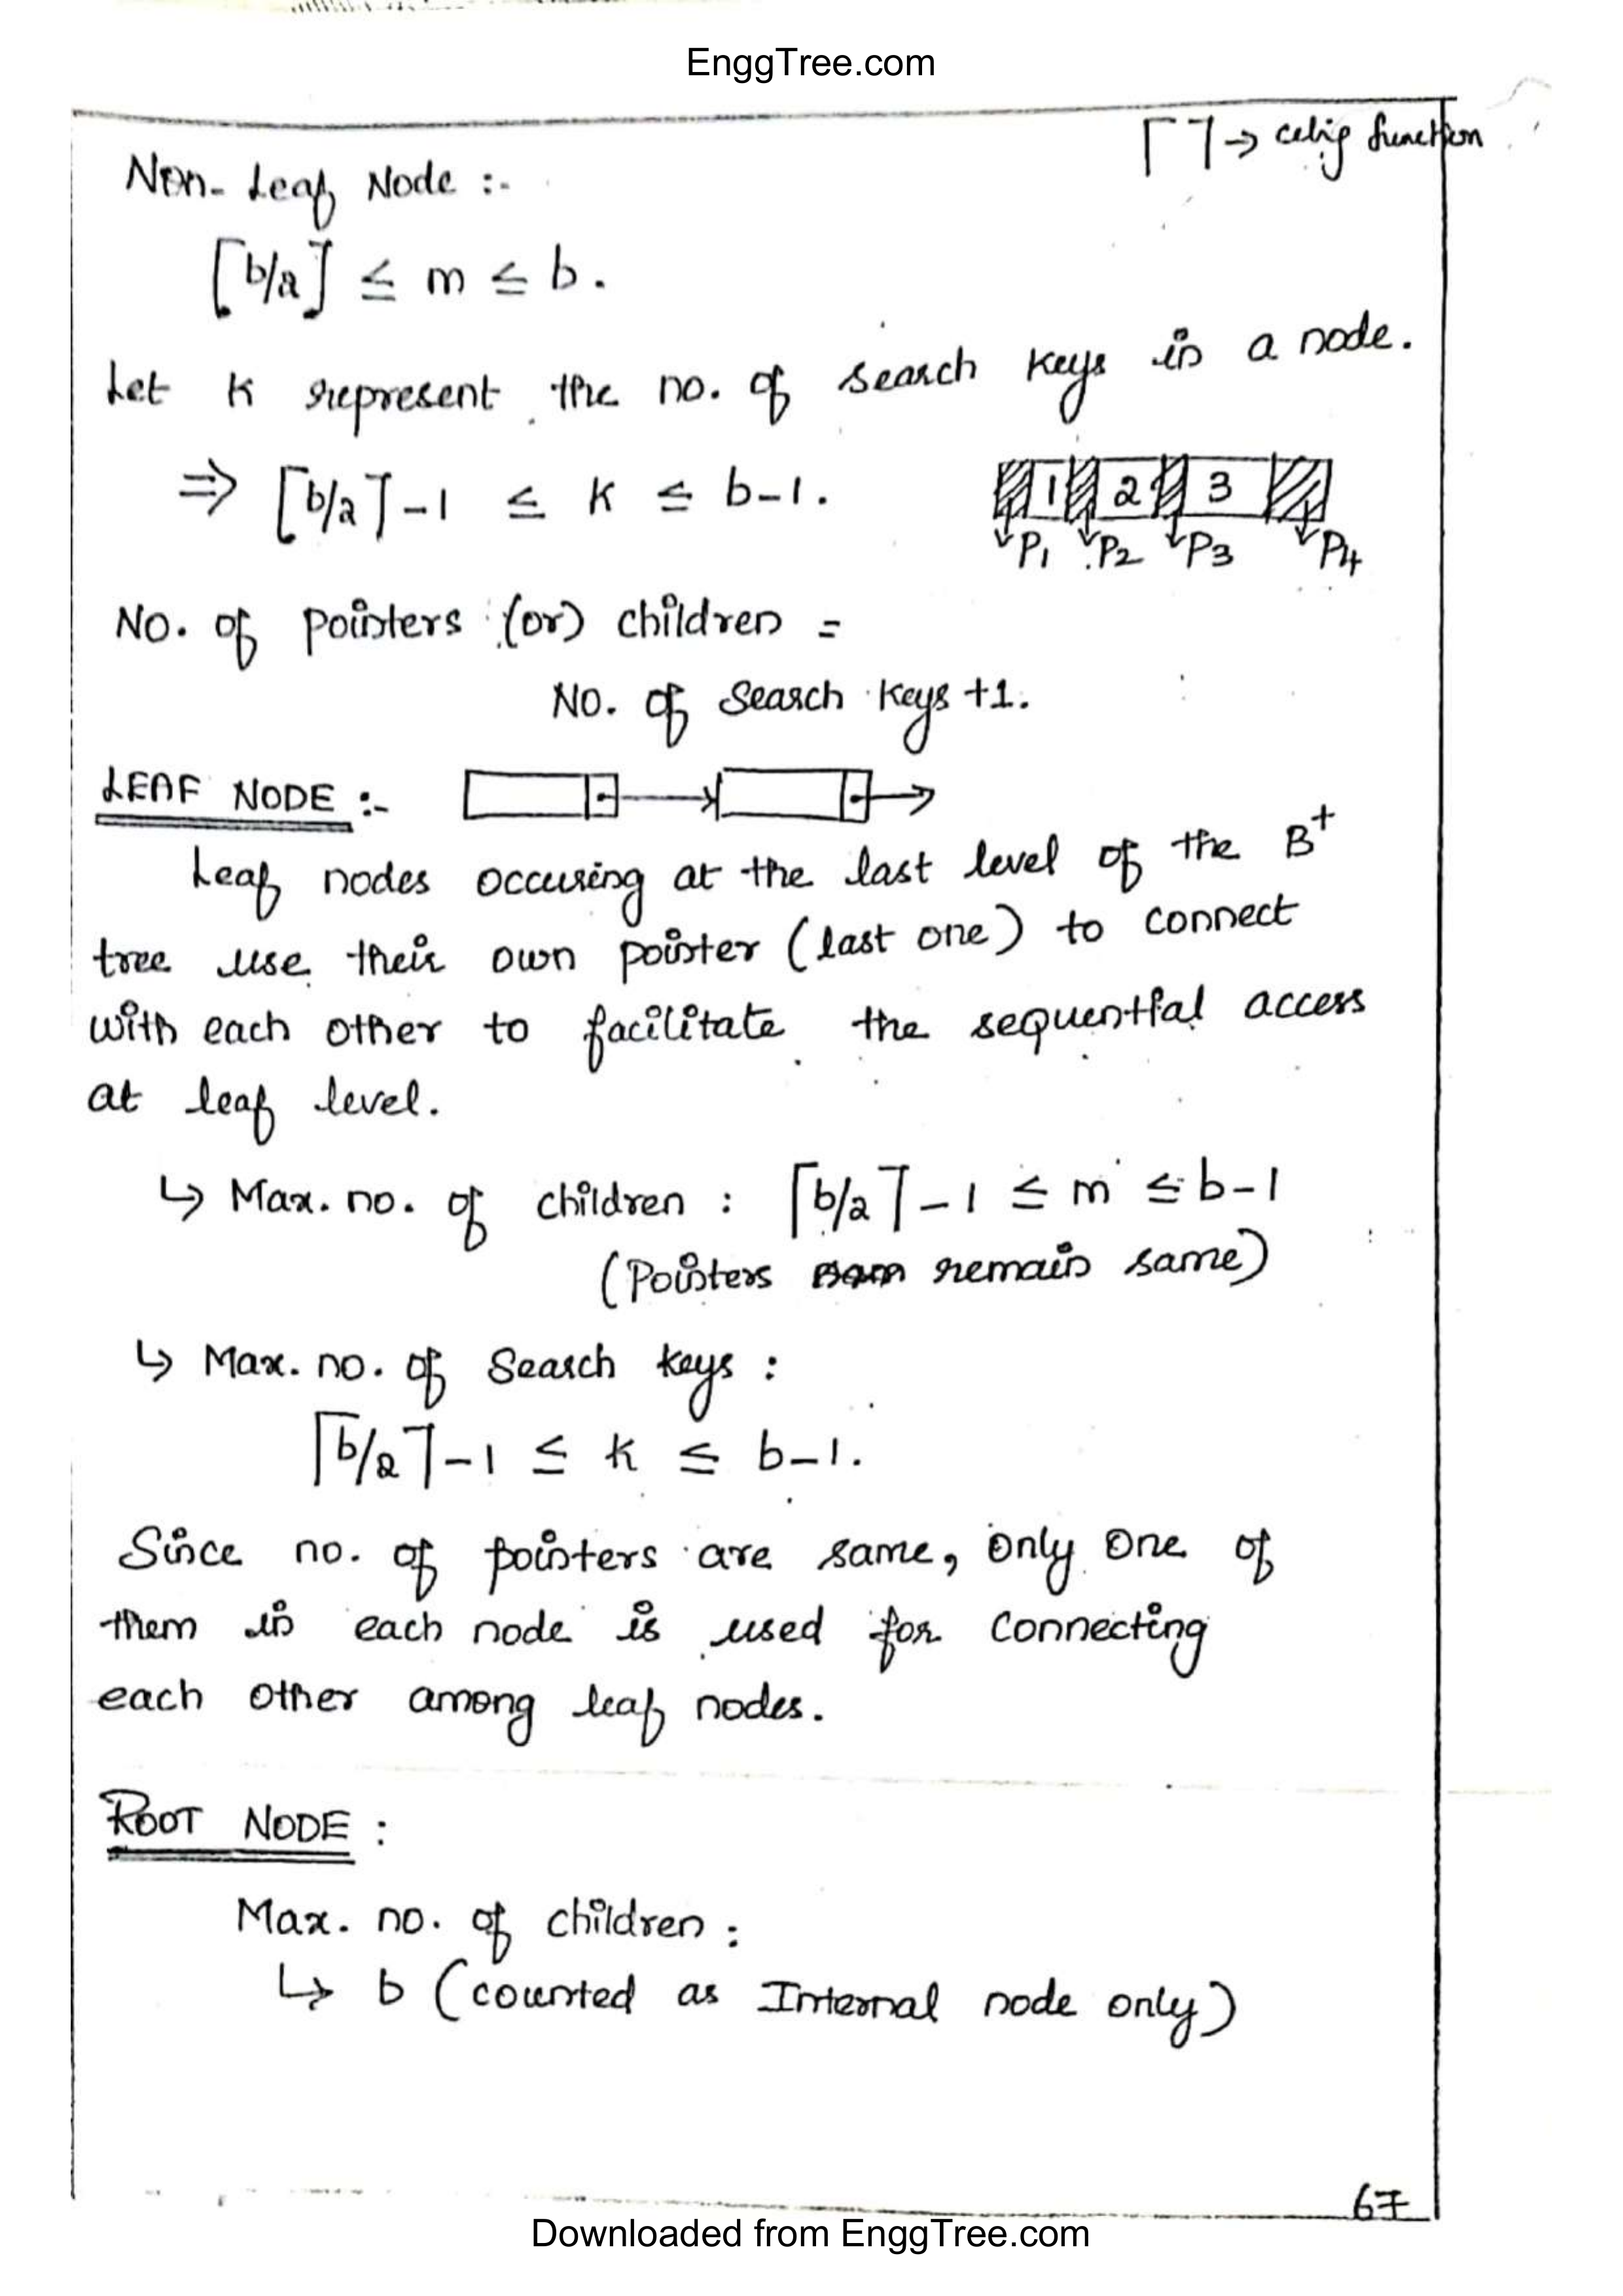 EnggTree.com
⌈ ⌉ → celig function
Non-Leaf Node :-
⌈b/2⌉ ≤ m ≤ b.
Let K represent the no. of search keys in a node.
⇒ ⌈b/2⌉-1 ≤ K ≤ b-1.
1 2 3
P1 P2 P3 P4
No. of pointers (or) children =
No. of Search Keys +1.
LEAF NODE :-
Leaf nodes occuring at the last level of the B+
tree use their own pointer (last one) to connect
with each other to facilitate the sequential access
at leaf level.
↳ Max. no. of children : ⌈b/2⌉-1 ≤ m ≤ b-1
(Pointers remain same)
↳ Max. no. of Search keys :
⌈b/2⌉-1 ≤ K ≤ b-1.
Since no. of pointers are same, only one of
them in each node is used for connecting
each other among leaf nodes.
ROOT NODE :
Max. no. of children :
↳ b (counted as Internal node only)
67
Downloaded from EnggTree.com